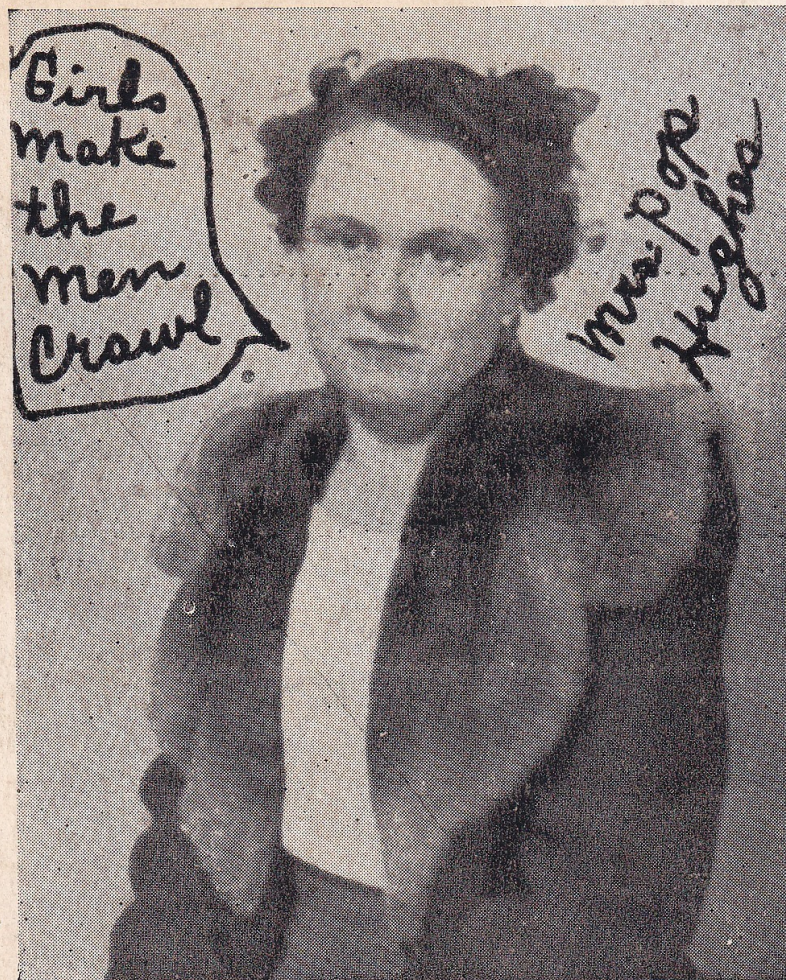 Girls
Make
the
Men
Crawl
Mrs. Pop
Hughes